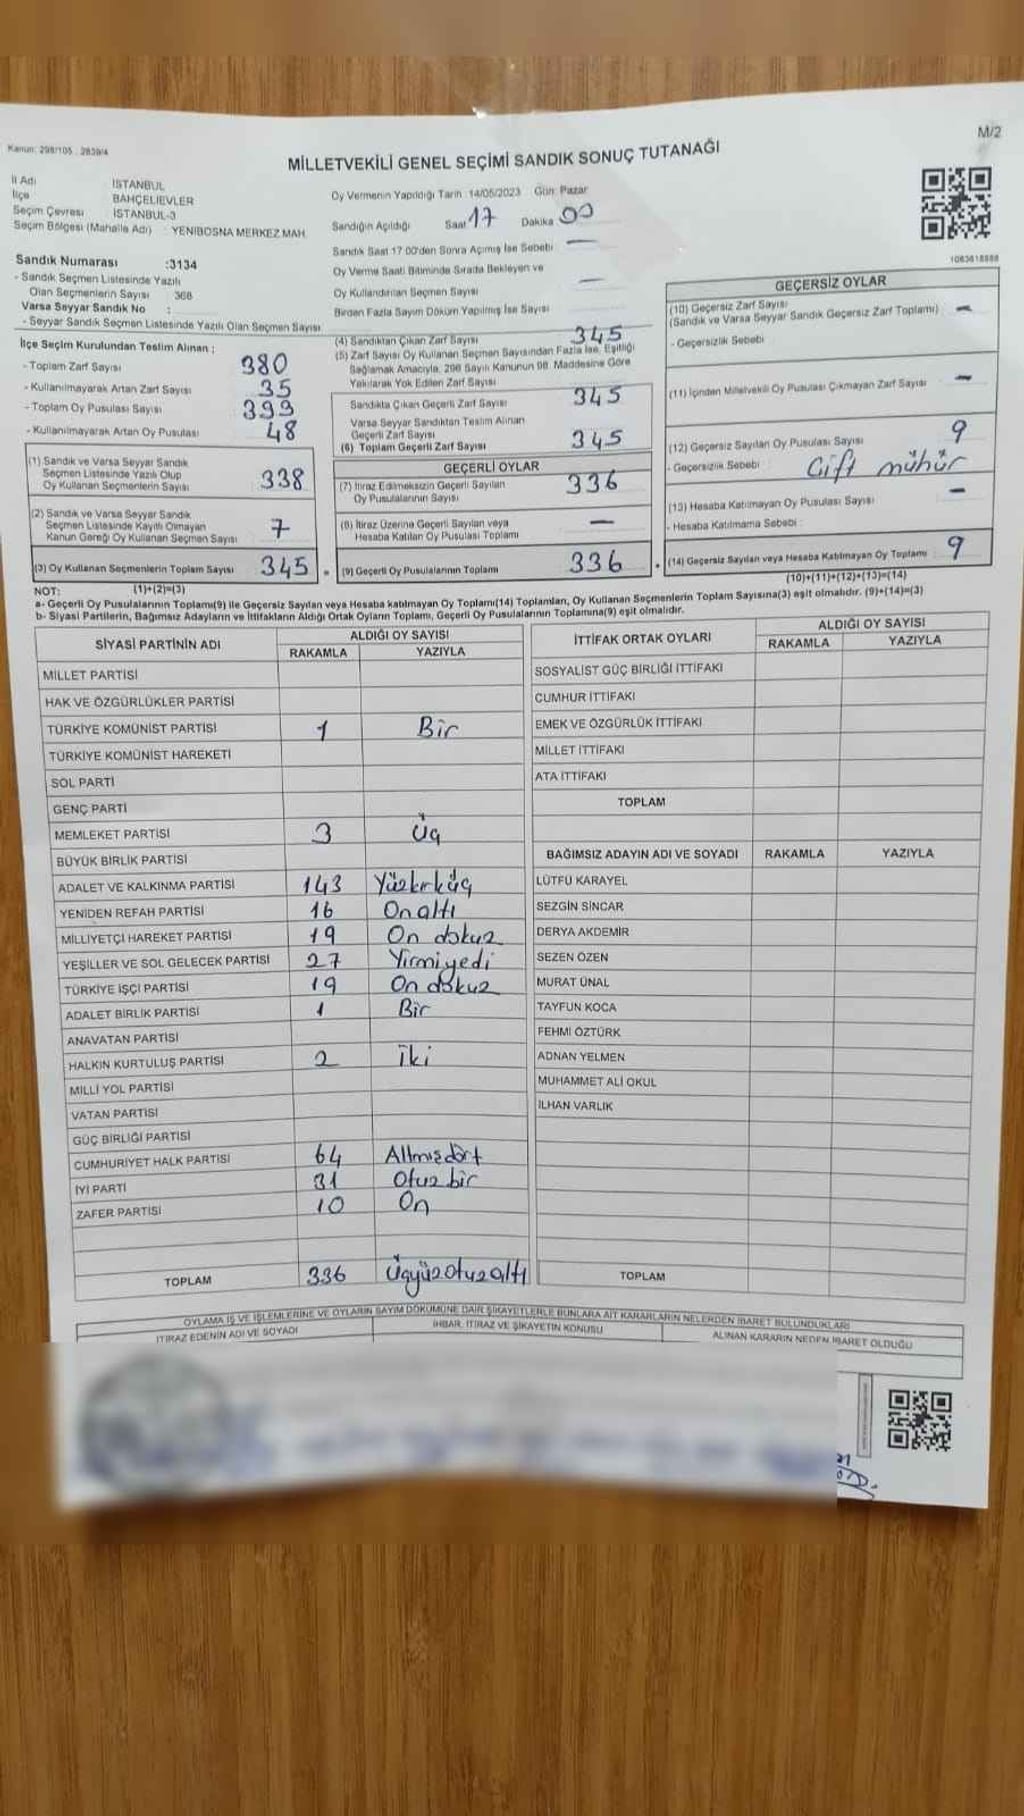 Kanun: 298/105 - 2839/4
M/2
MİLLETVEKİLİ GENEL SEÇİMİ SANDIK SONUÇ TUTANAĞI
İl Adı İSTANBUL
İlçe BAHÇELİEVLER
Seçim Çevresi İSTANBUL-3
Seçim Bölgesi (Mahalle Adı) : YENİBOSNA MERKEZ MAH.
Oy Vermenin Yapıldığı Tarih :14/05/2023 Gün: Pazar
Sandığın Açıldığı Saat 17 Dakika 00
Sandık Saat 17.00'den Sonra Açılmış İse Sebebi —
Oy Verme Saati Bitiminde Sırada Bekleyen ve
Oy Kullandırılan Seçmen Sayısı —
Birden Fazla Sayım Döküm Yapılmış İse Sayısı
Sandık Numarası :3134
- Sandık Seçmen Listesinde Yazılı
Olan Seçmenlerin Sayısı : 368
Varsa Seyyar Sandık No :
- Seyyar Sandık Seçmen Listesinde Yazılı Olan Seçmen Sayısı
İlçe Seçim Kurulundan Teslim Alınan ;
- Toplam Zarf Sayısı 380
- Kullanılmayarak Artan Zarf Sayısı 35
- Toplam Oy Pusulası Sayısı 393
- Kullanılmayarak Artan Oy Pusulası 48
(1) Sandık ve Varsa Seyyar Sandık
Seçmen Listesinde Yazılı Olup
Oy Kullanan Seçmenlerin Sayısı 338
(2) Sandık ve Varsa Seyyar Sandık
Seçmen Listesinde Kayıtlı Olmayan
Kanun Gereği Oy Kullanan Seçmen Sayısı 7
(3) Oy Kullanan Seçmenlerin Toplam Sayısı 345
(1)+(2)=(3)
(4) Sandıktan Çıkan Zarf Sayısı 345
(5) Zarf Sayısı Oy Kullanan Seçmen Sayısından Fazla İse, Eşitliği
Sağlamak Amacıyla, 298 Sayılı Kanunun 98. Maddesine Göre
Yakılarak Yok Edilen Zarf Sayısı
Sandıkta Çıkan Geçerli Zarf Sayısı 345
Varsa Seyyar Sandıktan Teslim Alınan
Geçerli Zarf Sayısı
(6) Toplam Geçerli Zarf Sayısı 345
GEÇERLİ OYLAR
(7) İtiraz Edilmeksizin Geçerli Sayılan
Oy Pusulalarının Sayısı 336
(8) İtiraz Üzerine Geçerli Sayılan veya
Hesaba Katılan Oy Pusulası Toplamı —
(9) Geçerli Oy Pusulalarının Toplamı 336
GEÇERSİZ OYLAR
(10) Geçersiz Zarf Sayısı
(Sandık ve Varsa Seyyar Sandık Geçersiz Zarf Toplamı) —
- Geçersizlik Sebebi
(11) İçinden Milletvekili Oy Pusulası Çıkmayan Zarf Sayısı —
(12) Geçersiz Sayılan Oy Pusulası Sayısı 9
- Geçersizlik Sebebi Çift mühür
(13) Hesaba Katılmayan Oy Pusulası Sayısı —
- Hesaba Katılmama Sebebi :
(14) Geçersiz Sayılan veya Hesaba Katılmayan Oy Toplamı 9
(10)+(11)+(12)+(13)=(14)
NOT:
a- Geçerli Oy Pusulalarının Toplamı(9) ile Geçersiz Sayılan veya Hesaba katılmayan Oy Toplamı(14) Toplamları, Oy Kullanan Seçmenlerin Toplam Sayısına(3) eşit olmalıdır. (9)+(14)=(3)
b- Siyasi Partilerin, Bağımsız Adayların ve İttifakların Aldığı Ortak Oyların Toplamı, Geçerli Oy Pusulalarının Toplamına(9) eşit olmalıdır.
SİYASİ PARTİNİN ADI ALDIĞI OY SAYISI
RAKAMLA YAZIYLA
MİLLET PARTİSİ
HAK VE ÖZGÜRLÜKLER PARTİSİ
TÜRKİYE KOMÜNİST PARTİSİ 1 Bir
TÜRKİYE KOMÜNİST HAREKETİ
SOL PARTİ
GENÇ PARTİ
MEMLEKET PARTİSİ 3 Üç
BÜYÜK BİRLİK PARTİSİ
ADALET VE KALKINMA PARTİSİ 143 Yüzkırküç
YENİDEN REFAH PARTİSİ 16 On altı
MİLLİYETÇİ HAREKET PARTİSİ 19 On dokuz
YEŞİLLER VE SOL GELECEK PARTİSİ 27 Yirmiyedi
TÜRKİYE İŞÇİ PARTİSİ 19 On dokuz
ADALET BİRLİK PARTİSİ 1 Bir
ANAVATAN PARTİSİ
HALKIN KURTULUŞ PARTİSİ 2 İki
MİLLİ YOL PARTİSİ
VATAN PARTİSİ
GÜÇ BİRLİĞİ PARTİSİ
CUMHURİYET HALK PARTİSİ 64 Altmışdört
İYİ PARTİ 31 Otuz bir
ZAFER PARTİSİ 10 On
TOPLAM 336 Üçyüzotuzaltı
İTTİFAK ORTAK OYLARI ALDIĞI OY SAYISI
RAKAMLA YAZIYLA
SOSYALİST GÜÇ BİRLİĞİ İTTİFAKI
CUMHUR İTTİFAKI
EMEK VE ÖZGÜRLÜK İTTİFAKI
MİLLET İTTİFAKI
ATA İTTİFAKI
TOPLAM
BAĞIMSIZ ADAYIN ADI VE SOYADI RAKAMLA YAZIYLA
LÜTFÜ KARAYEL
SEZGİN SİNCAR
DERYA AKDEMİR
SEZEN ÖZEN
MURAT ÜNAL
TAYFUN KOCA
FEHMİ ÖZTÜRK
ADNAN YELMEN
MUHAMMET ALİ OKUL
İLHAN VARLIK
TOPLAM
OYLAMA İŞ VE İŞLEMLERİNE VE OYLARIN SAYIM DÖKÜMÜNE DAİR ŞİKAYETLERLE BUNLARA AİT KARARLARIN NELERDEN İBARET BULUNDUKLARI
İTİRAZ EDENİN ADI VE SOYADI İHBAR, İTİRAZ VE ŞİKAYETİN KONUSU ALINAN KARARIN NEDEN İBARET OLDUĞU